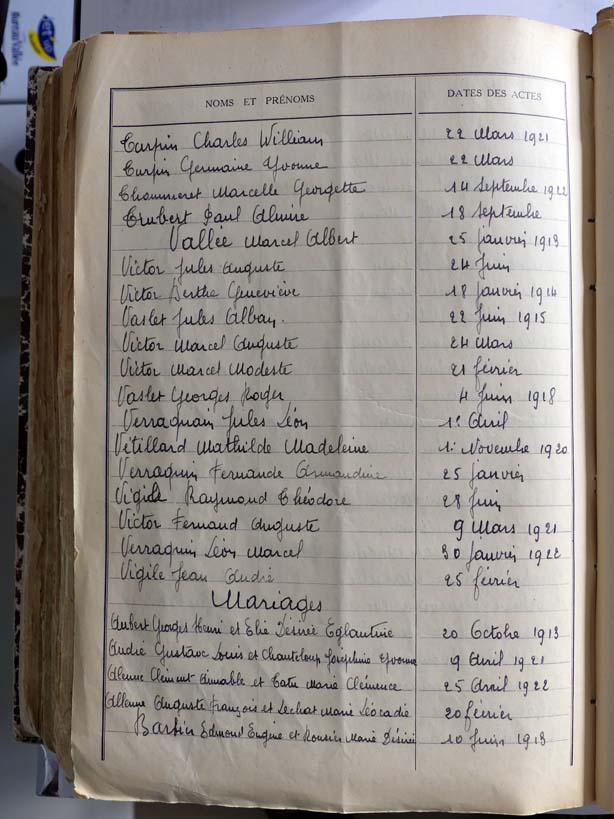 Bureau Vallée
NOMS ET PRÉNOMS DATES DES ACTES
Turpin Charles William 22 Mars 1921
Turpin Germaine Yvonne 22 Mars
Thommeret Marcelle Georgette 14 Septembre 1922
Trubert Paul Almire 18 Septembre
Vallée Marcel Albert 25 Janvier 1913
Victor Jules Auguste 24 Juin
Victor Berthe Geneviève 18 Janvier 1914
Vaslet Jules Alban. 22 Juin 1915
Victor Marcel Auguste 24 Mars
Victor Marcel Modeste 21 février
Vaslet Georges Roger 4 Juin 1918
Verraquin Jules Léon 1er Avril
Vétillard Mathilde Madeleine 1er Novembre 1920
Verraquin Fernande Armandine 25 Janvier
Vigile Raymond Théodore 28 Juin
Victor Fernand Auguste 9 Mars 1921
Verraquin Léon Marcel 30 Janvier 1922
Vigile Jean André 25 février
Mariages
Aubert Georges Henri et Elie Désirée Eglantine 20 Octobre 1913
André Gustave Louis et Chanteloup Joséphine Yvonne 9 Avril 1921
Alenne Clément Aimable et Marie Clémence 25 Avril 1922
Allenne Auguste François et Lechat Marie Léocadie 20 février
Barbier Edmond Eugène et Marie Désirée 10 Juin 1913